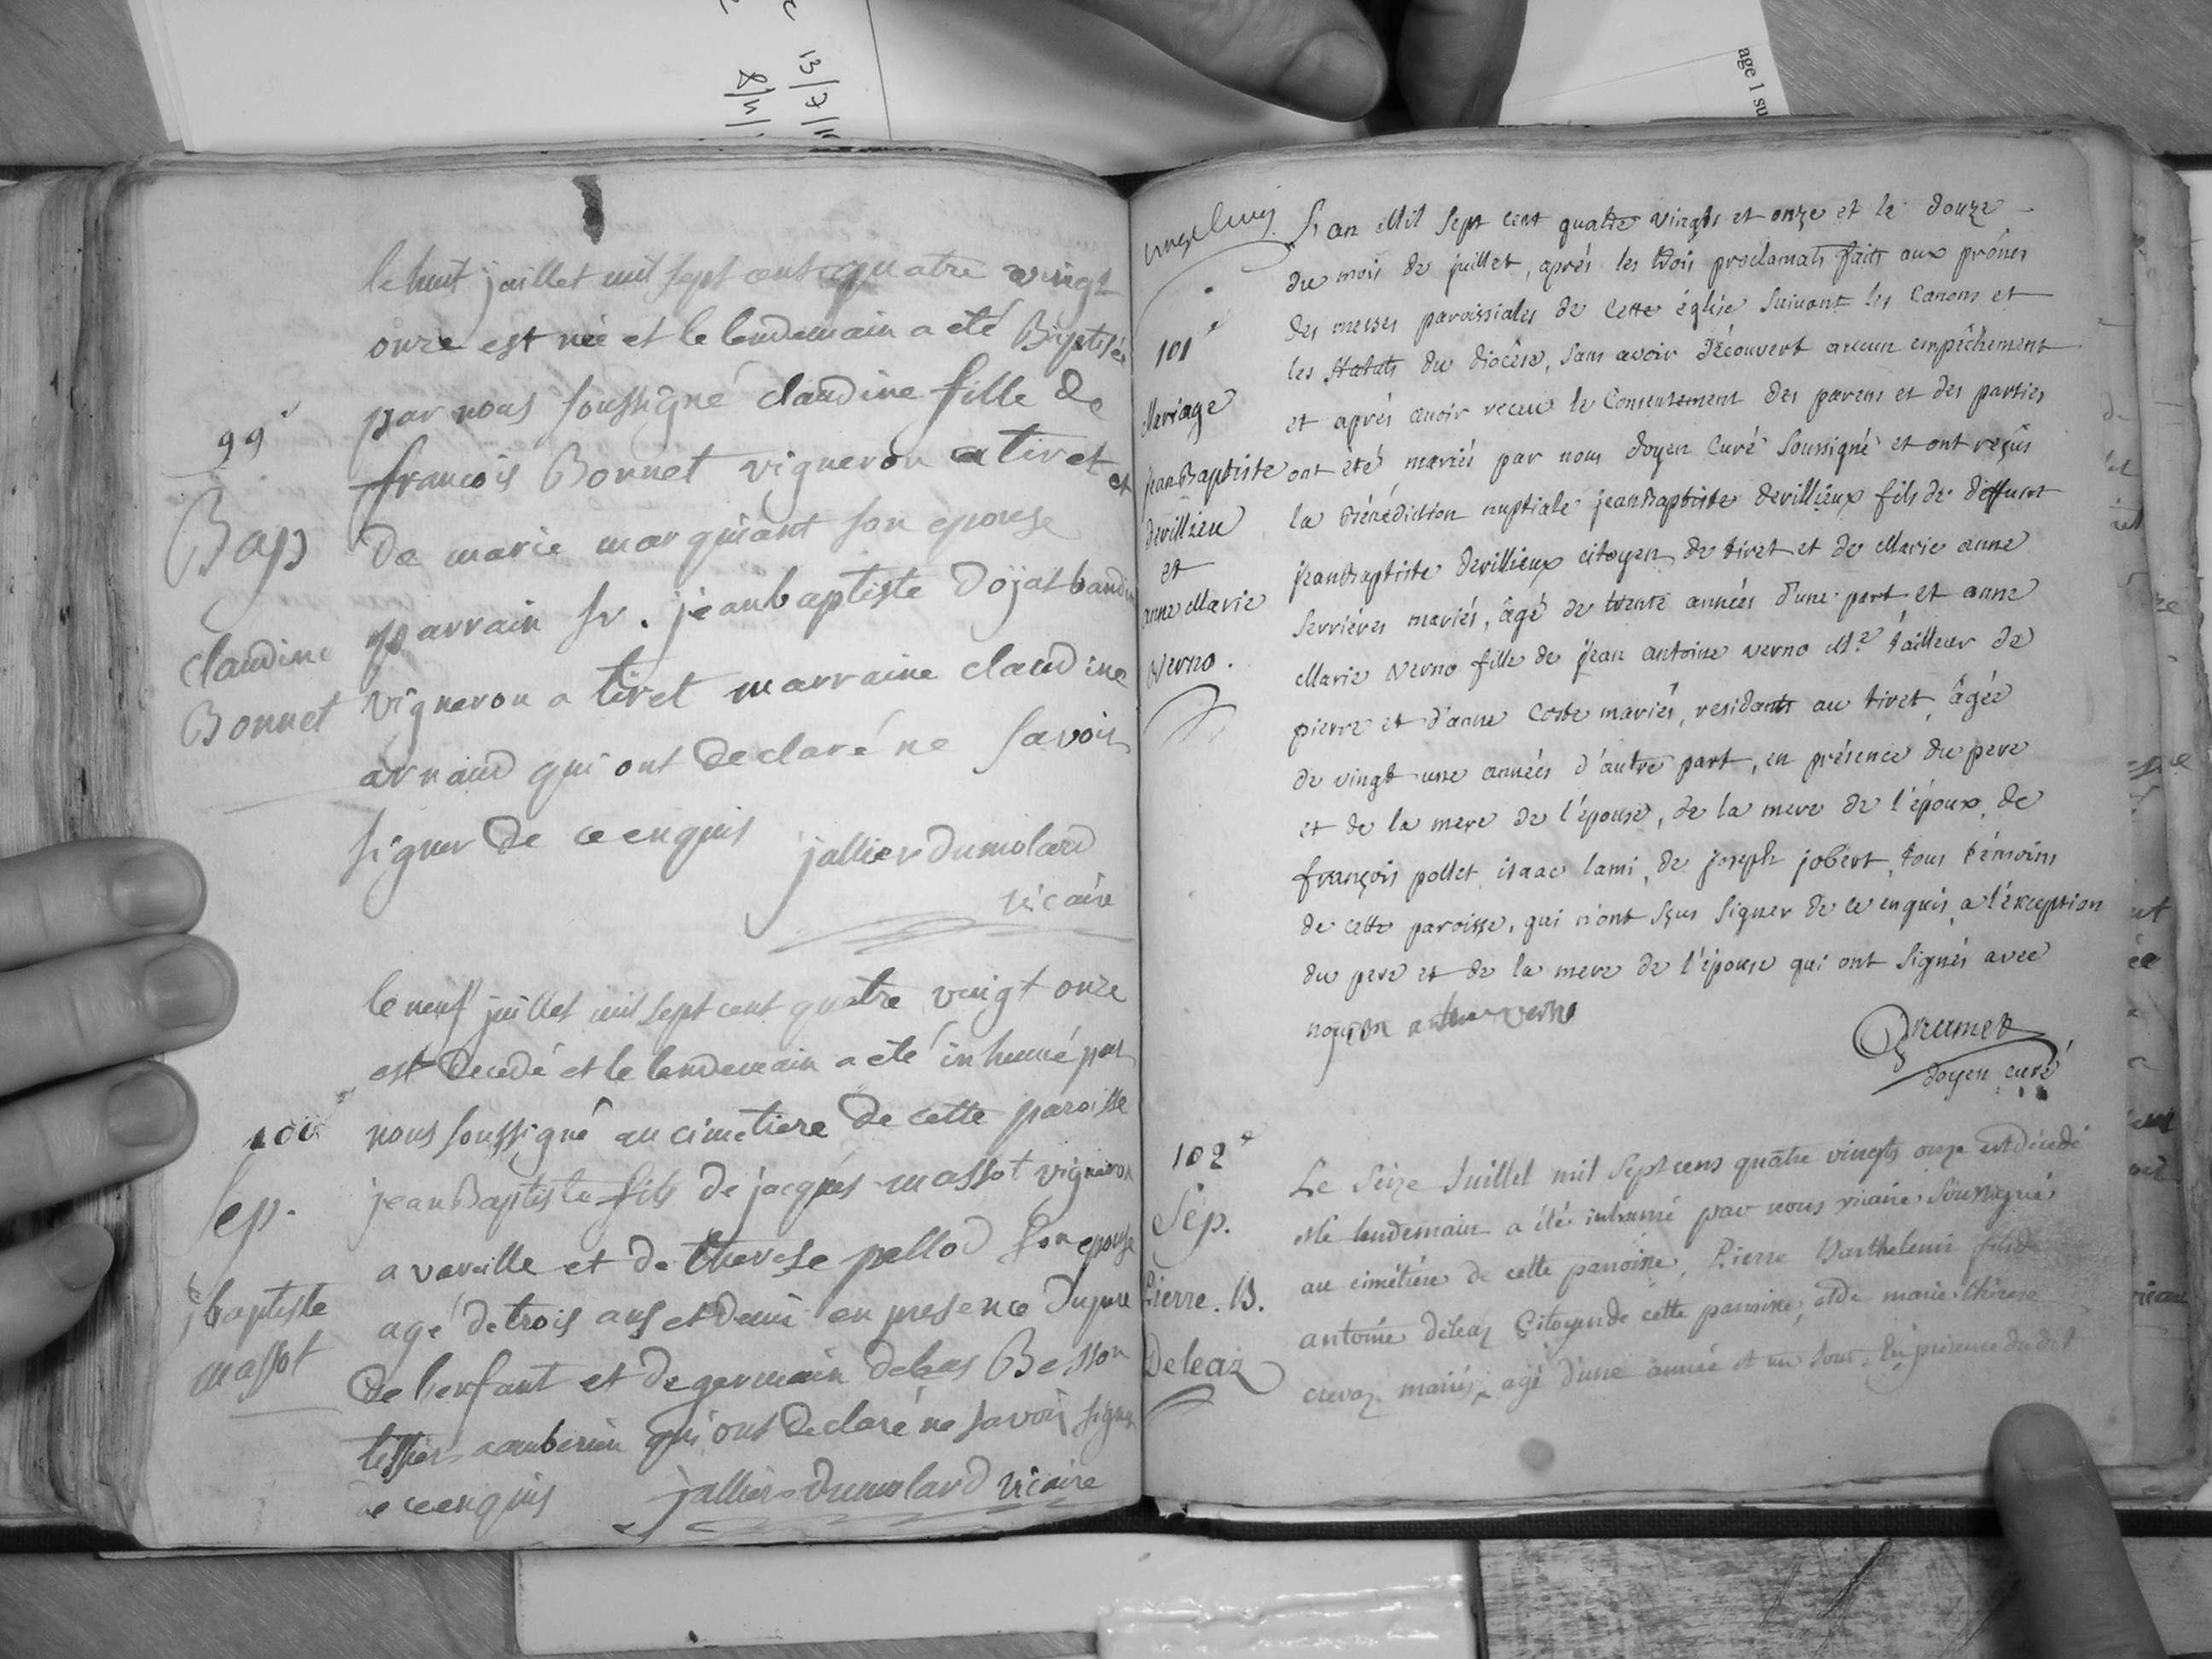 13/7/
8/4/
age 1 su
99e
Bap
claudine
Bonnet
le huit juillet mil sept cent quatre vingt
onze est née et le lendemain a eté Baptisée
par nous soussigné claudine fille de
francois Bonnet vigneron a tiret et
de marie marguirant son epouse
parrain sr. jeanbaptiste Dojat baudin
vigneron a tiret marraine claudine
arnaud qui ont declaré ne savoir
signer de ce enquis jallier dumolard
vicaire
100e
Sep.
jbaptiste
massot
le neuf juillet mil sept cent quatre vingt onze
est decedé et le lendemain a eté inhumé par
nous soussigné au cimetiere de cette paroisse
jeanBaptiste fils de jacques massot vigneron
a vareille et de therese pellod son epouse
agé de trois ans et demi en presence du pere
de l'enfant et de germain debas Besson
tessier a amberieu qui ont declaré ne savoir signer
de ce enquis jallier dumolard vicaire
101e
Mariage
jeanBaptiste
devillieu
et
anne Marie
Verno.
L'an Mil Sept cent quatre vingts et onze et le douze
du mois de juillet, aprés les trois proclamats faits aux prônes
des messes paroissiales de cette église suivant les Canons et
les Statuts du diocèse, sans avoir découvert aucun empêchement
et aprés avoir receu le Consentement des parens et des parties
ont été mariés par nous doyen Curé soussigné et ont reçus
la bénédiction nuptiale jeanBaptiste devillieux fils de deffunt
jeanBaptiste devillieux citoyen de tiret et de Marie anne
Serriéres mariés, âgé de trente années d'une part et anne
Marie Verno fille de jean antoine verno Me. tailleur de
pierre et d'anne Coste mariés, residants au tiret, âgée
de vingt une années d'autre part, en présence du pere
et de la mere de l'épouse, de la mere de l'époux, de
françois pollet, isaac lami, de joseph jobert, tous témoins
de cette paroisse, qui n'ont sçus signer de ce enquis, a l'éxception
du pere et de la mere de l'épouse qui ont signés avec
nous verno
Gramet
doyen curé
102e
Sep.
Pierre. B.
Deleaz
Le Seize Juillet mil Sept cens quatre vingts onze est décédé
et le lendemain a été inhumé par nous vicaire Soussigné
au cimétière de cette paroisse, Pierre Barthelemi fils de
antoine deleaz Citoyen de cette paroisse, et de marie thérese
crevaz mariés, agé d'une année et un jour, En présence du dit